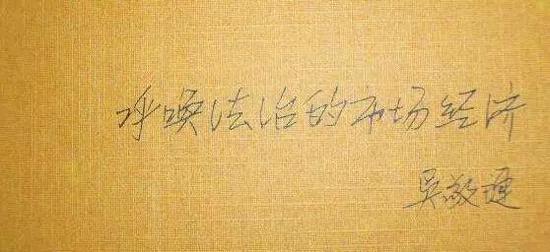 呼唤法治的市场经济
吴敬琏